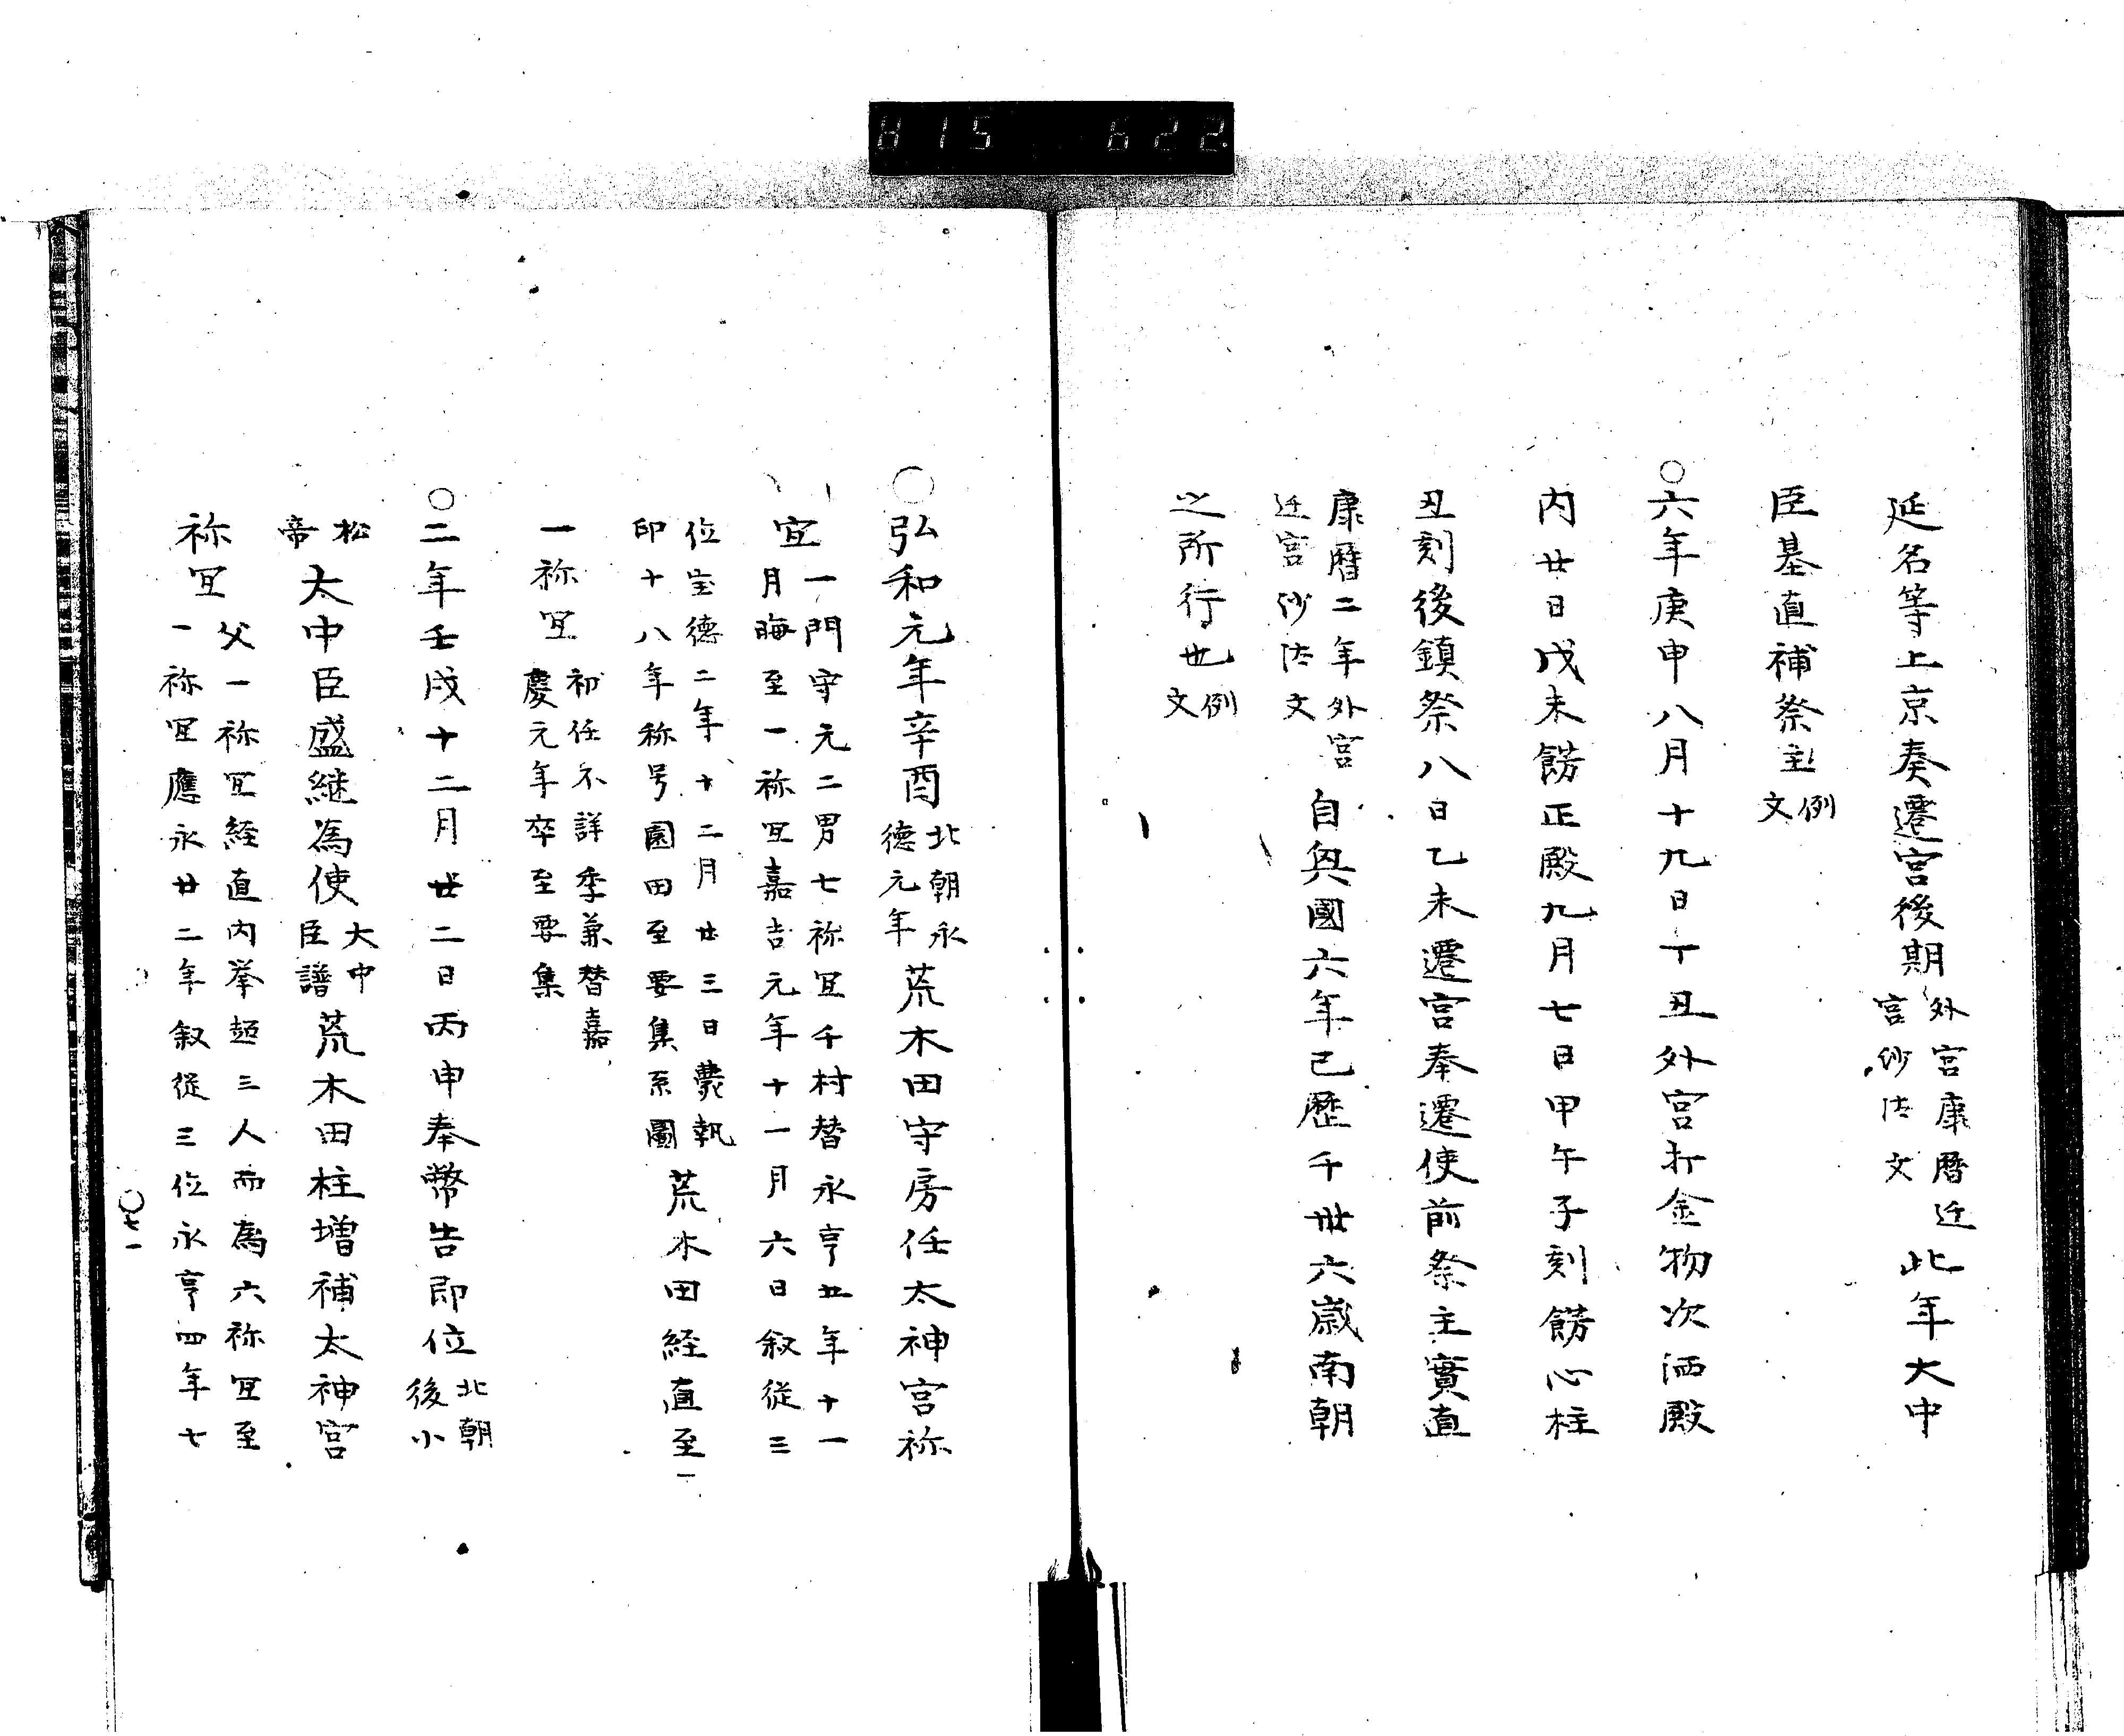 815 622
延名等上京奏遷宮後期 外宮康暦迁宮沙汰文 此年大中
臣基直補祭主 例文
○六年庚申八月十九日丁丑外宮打金物次洒殿
内廿日戊未餝正殿九月七日甲午子刻餝心柱
丑刻後鎮祭八日乙未遷宮奉遷使前祭主實直
康暦二年外宮迁宮沙汰文 自興國六年已歷千卌六歳南朝
之所行也 例文
○弘和元年辛酉 北朝永德元年 荒木田守房任太神宮祢
宜 一門守元二男七祢宜千村替永亨五年十一月晦至一祢宜嘉吉元年十一月六日叙從三
位宝德二年十二月廿三日薨執印十八年称号園田至要集系圖 荒木田経直至
一祢宜 初任不詳季兼替嘉慶元年卒至要集
○二年壬戌十二月廿二日丙申奉幣告即位 北朝後小
松帝 大中臣盛継為使 大中臣譜 荒木田柱増補太神宮
祢宜 父一祢宜経直内挙超三人而為六祢宜至一祢宜應永廿二年叙從三位永亨四年七
○七一